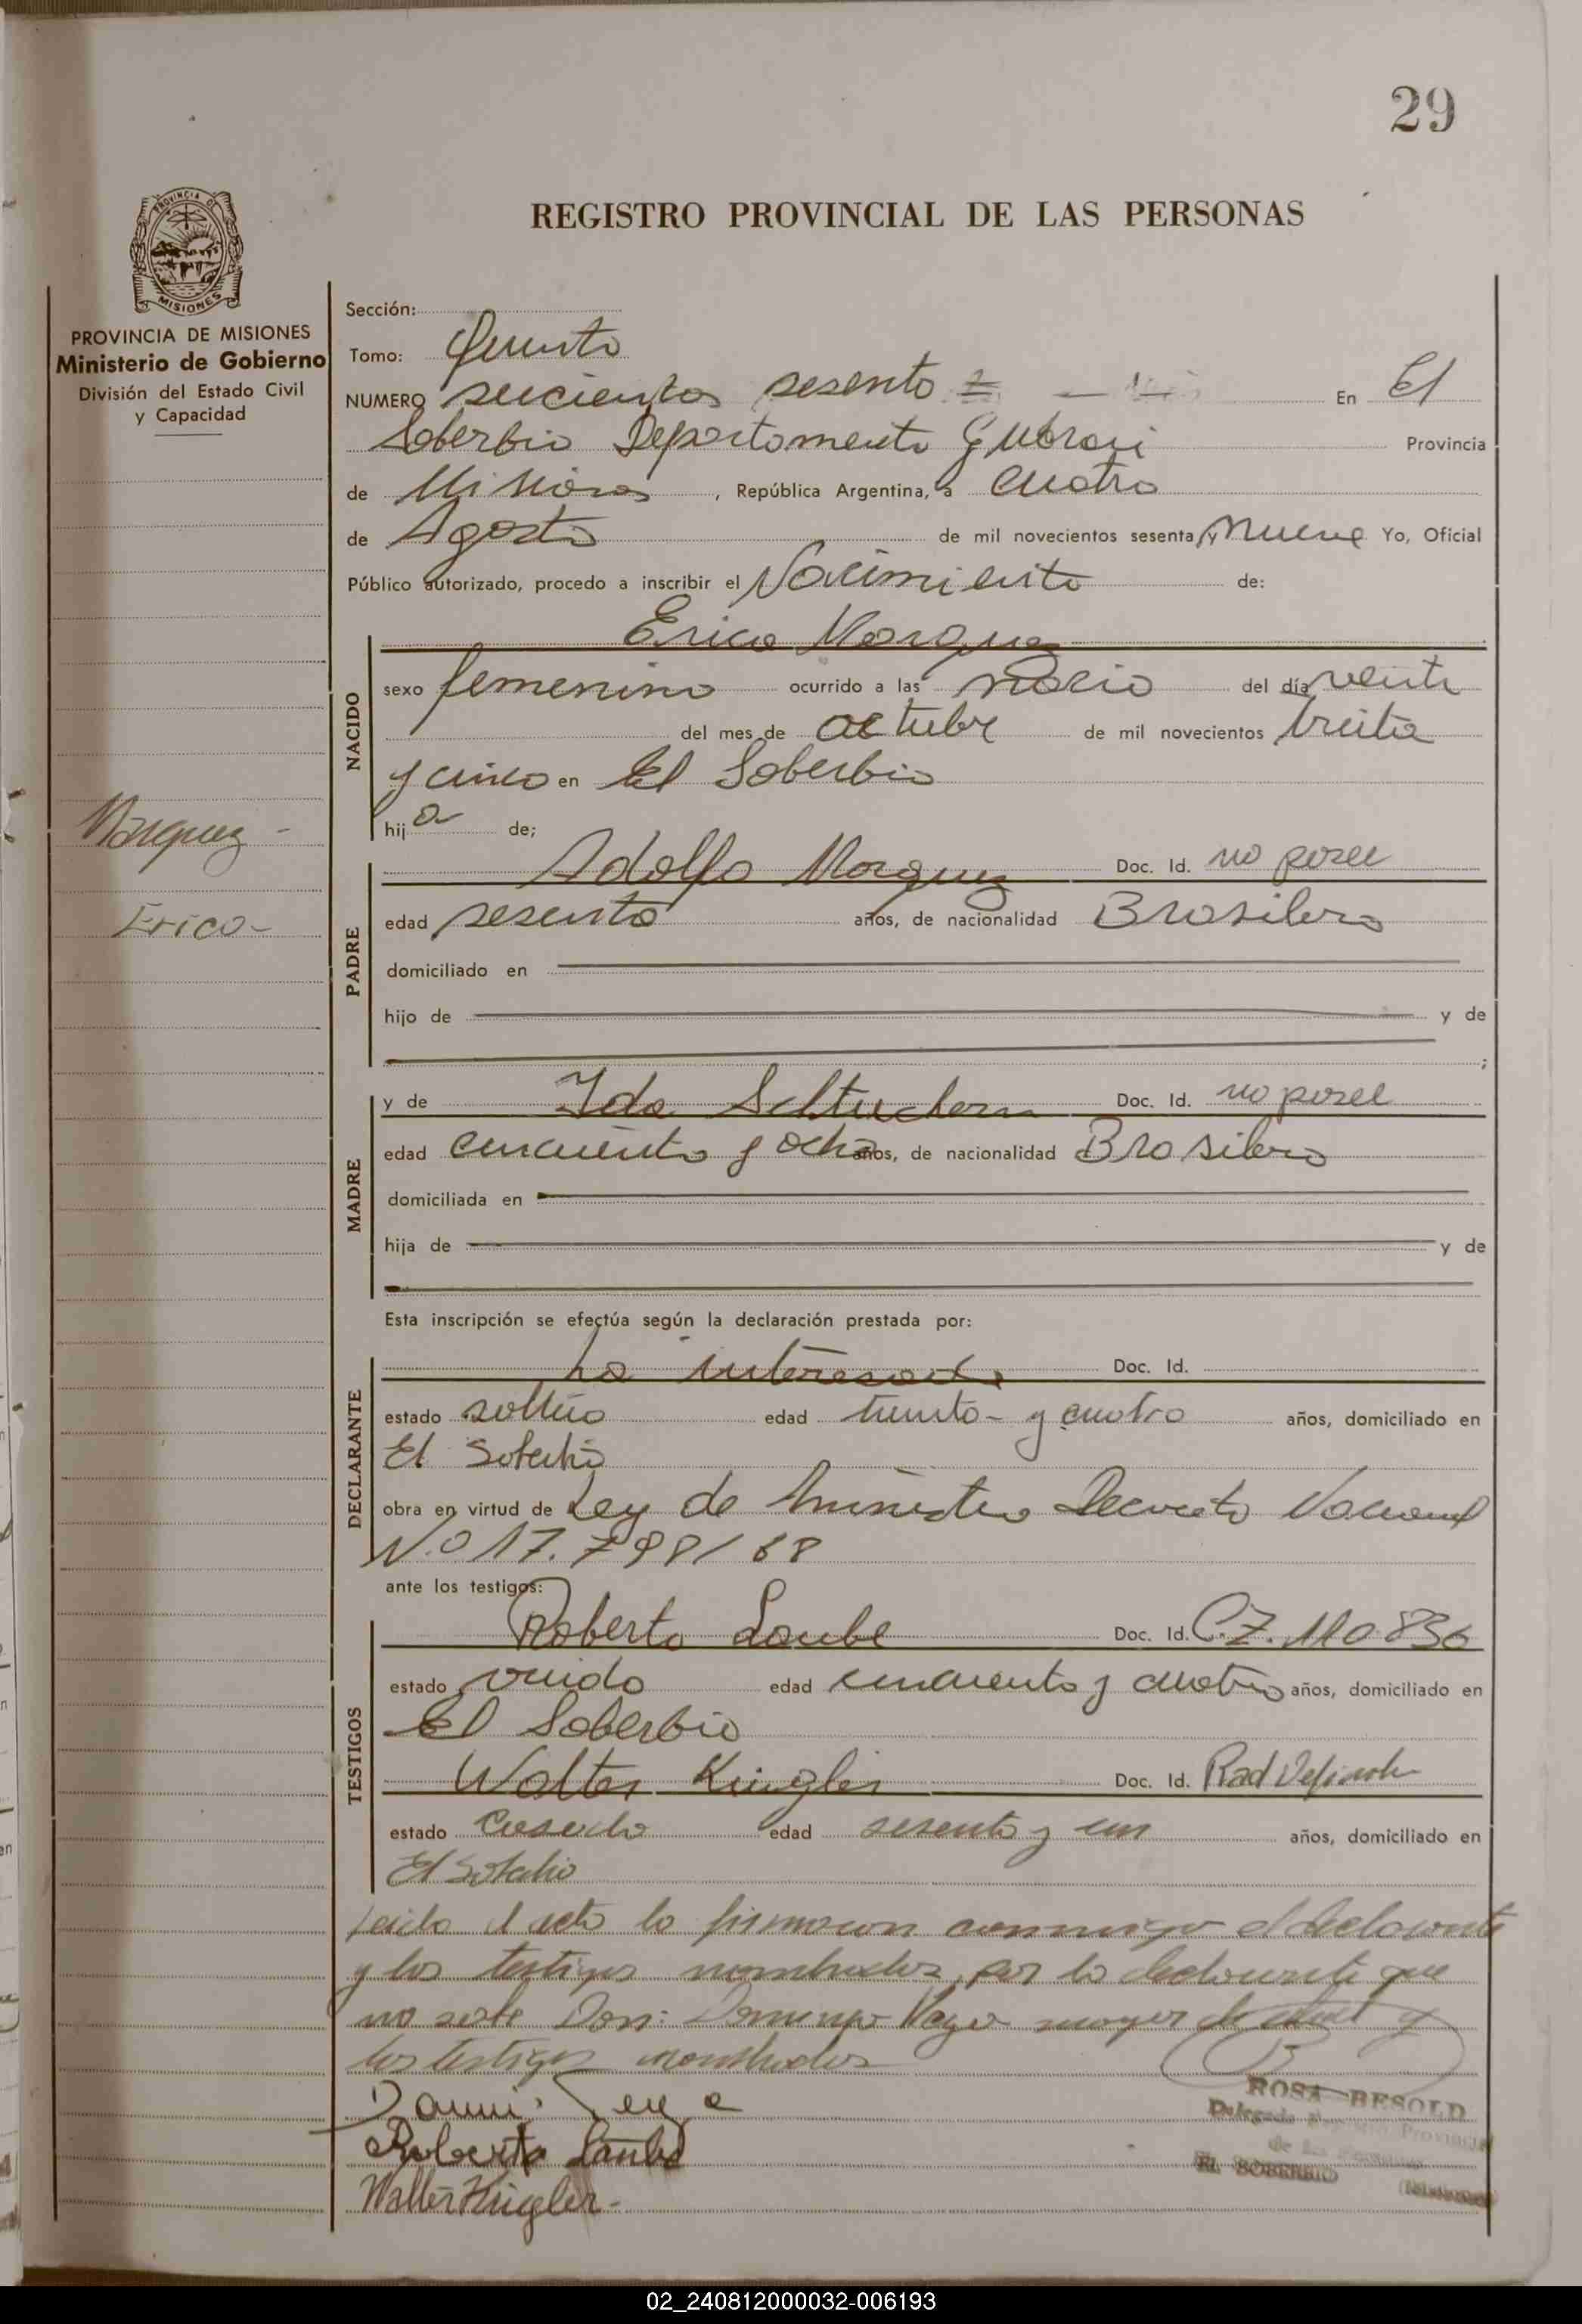 29
REGISTRO PROVINCIAL DE LAS PERSONAS
PROVINCIA DE
MISIONES
PROVINCIA DE MISIONES
Ministerio de Gobierno
División del Estado Civil
y Capacidad
Sección:
Tomo: Quinto
NUMERO seiscientos sesenta En El
Soberbio Departamento Guarani Provincia
de Misiones, República Argentina, a cuatro
de Agosto de mil novecientos sesenta y nueve Yo, Oficial
Público autorizado, procedo a inscribir el Nacimiento de:
Erica Marquez
NACIDO
sexo femenino ocurrido a las del día veinte
del mes de octubre de mil novecientos treinta
y cinco en El Soberbio
hija de;
Marquez -
Erica -
PADRE
Adolfo Marquez Doc. Id. no posee
edad sesenta años, de nacionalidad Brasilera
domiciliado en
hijo de y de
;
MADRE
y de Ida Doc. Id. no posee
edad cincuenta y ocho años, de nacionalidad Brasilera
domiciliada en
hija de y de
Esta inscripción se efectúa según la declaración prestada por:
DECLARANTE
La interesada Doc. Id.
estado soltera edad treinta - y cuatro años, domiciliado en
El Soberbio
obra en virtud de Ley de Decreto Nacional
N.º 17.798/68
ante los testigos:
TESTIGOS
Roberto Laube Doc. Id. C.I. 110.836
estado viudo edad cincuenta y cuatro años, domiciliado en
El Soberbio
Walter Kugler Doc. Id. Rad
estado casado edad sesenta y un años, domiciliado en
El Soberbio
Leida el acta la firmaron conmigo el declarante
y los testigos nombrados, por la declarante que
no sabe Don: Domingo mayor de edad y
los testigos nombrados
Roberto Laube
Walter Kugler -
ROSA BESOLD
Delegada Registro Provincial
de las Personas
EL SOBERBIO
02_240812000032-006193